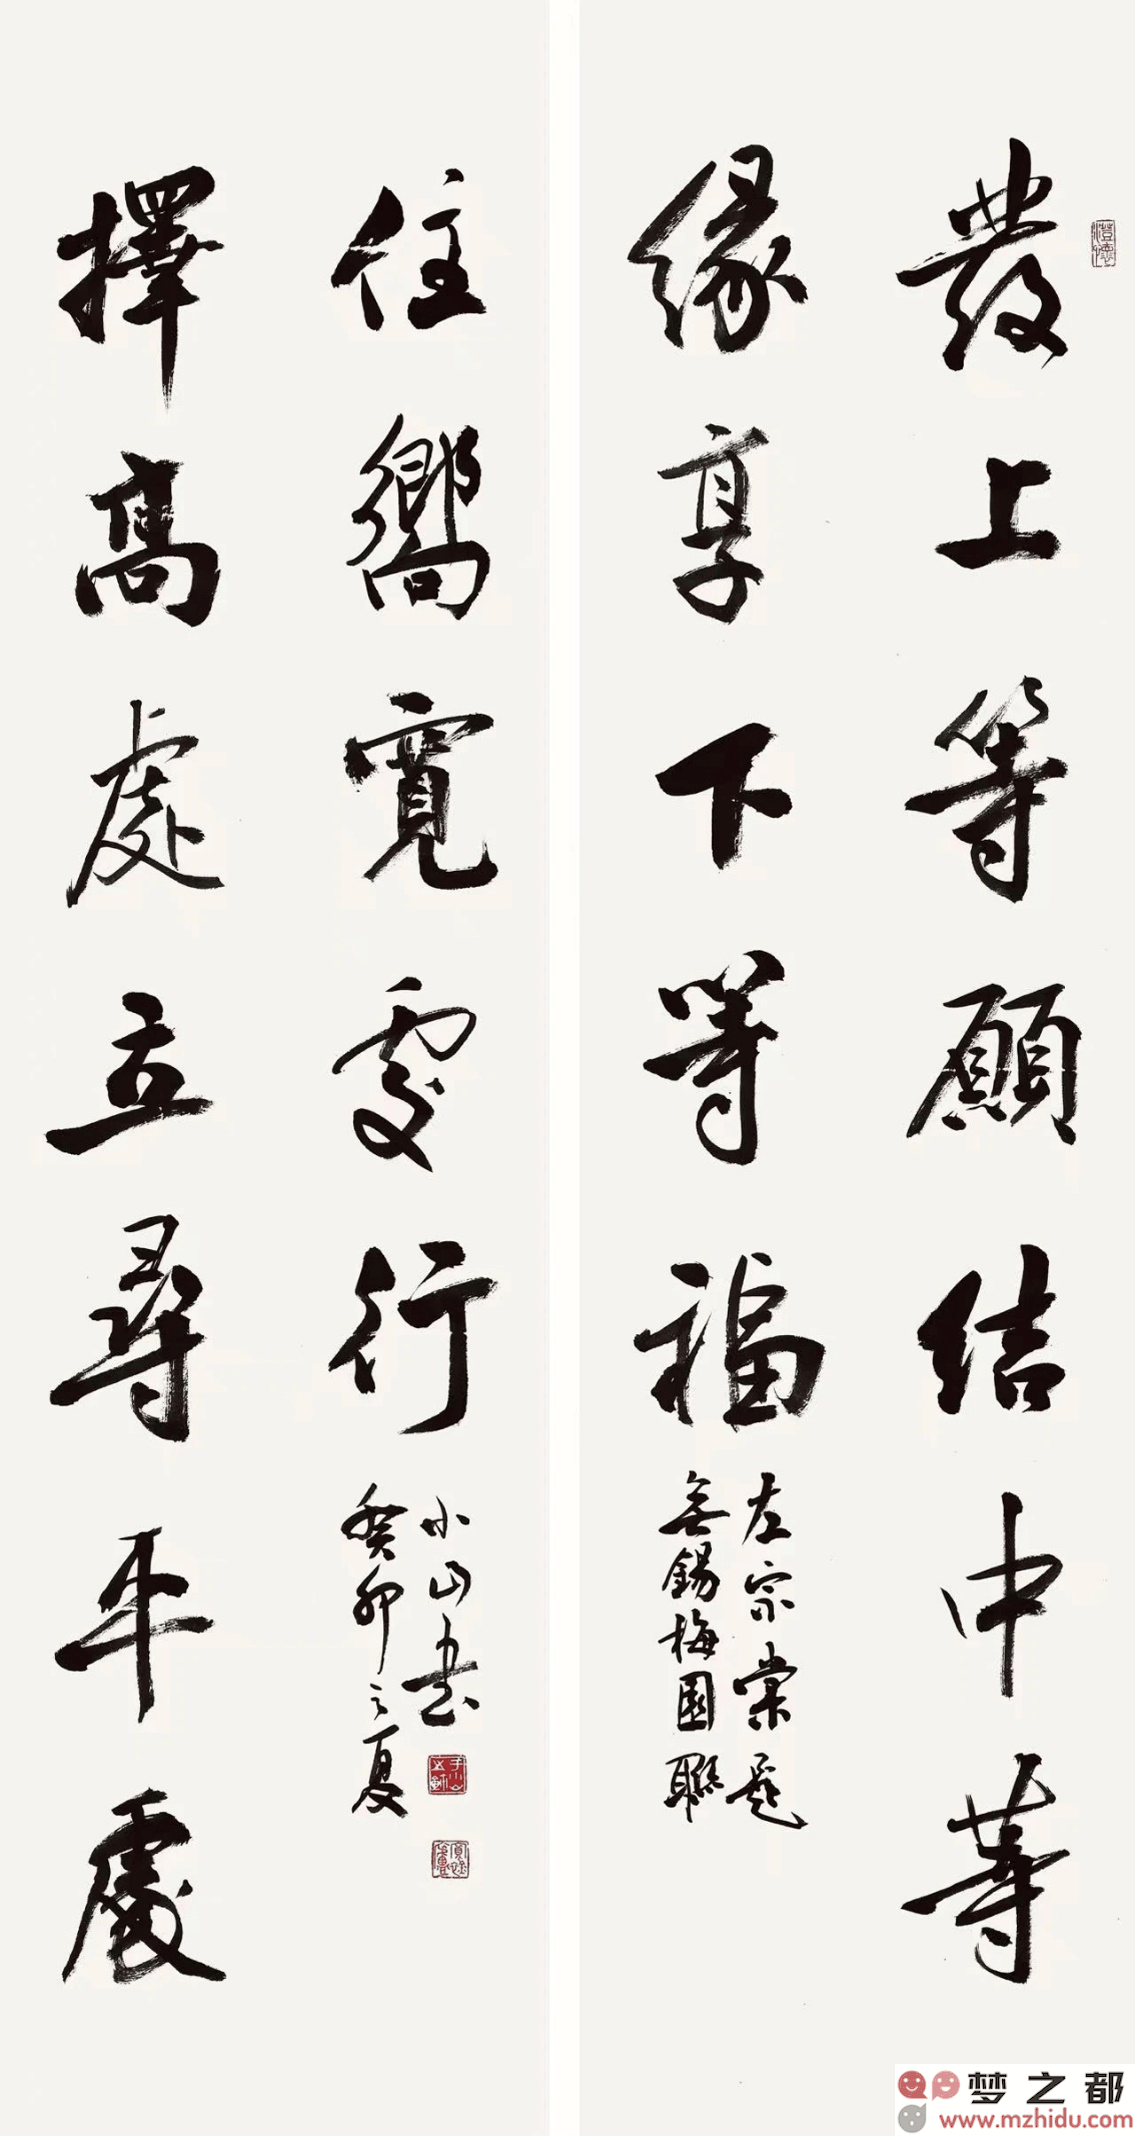 發上等願結中等
緣享下等福
左宗棠題
無錫梅園聯
擇高處立尋平處
住嚮寬處行
癸卯之夏
小山書
澄懷
梦之都
www.mzhidu.com